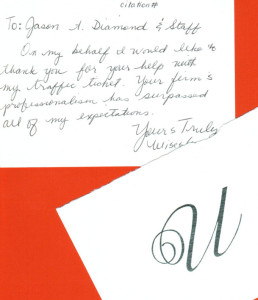 Citation#
To: Jason A. Diamond & Staff
On my behalf I would like to
thank you for your help with
my traffic ticket. Your firm's
professionalism has surpassed
all of my expectations.
Yours Truly
U